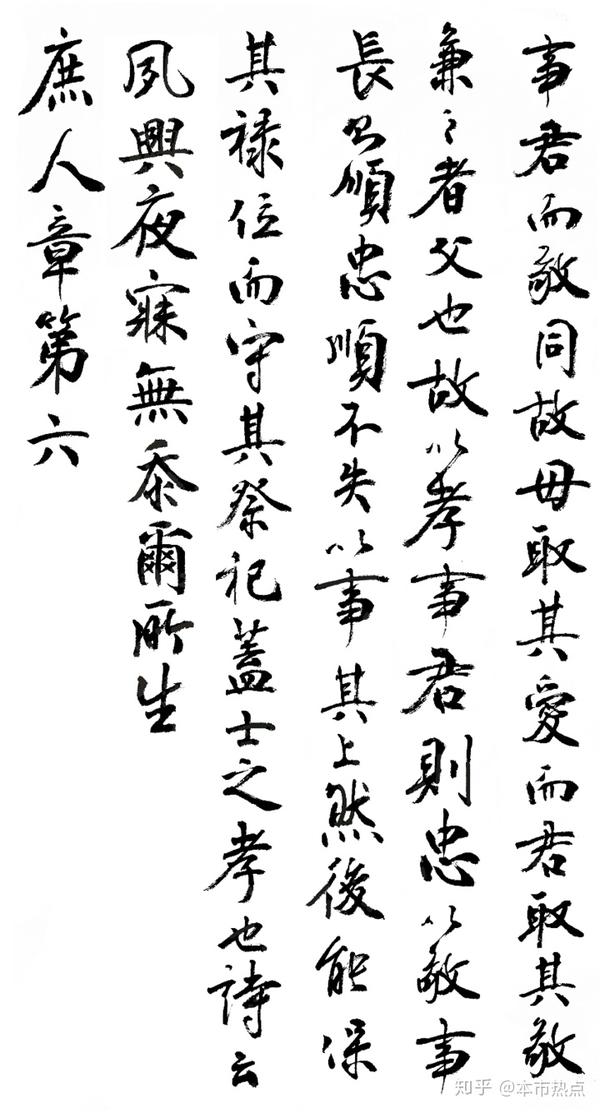 事君而敬同故母取其愛而君取其敬
兼之者父也故以孝事君則忠以敬事
長則順忠順不失以事其上然後能保
其祿位而守其祭祀蓋士之孝也詩云
夙興夜寐無忝爾所生
庶人章第六
知乎 @本市热点